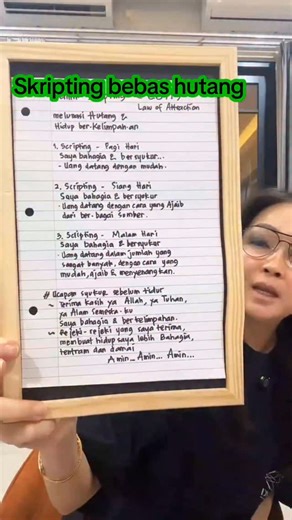 Skripting bebas hutang
Law of Attraction
melunasi Hutang &
Hidup ber-kelimpah-an
1. Scripting - Pagi Hari
Saya bahagia & bersyukur...
- Uang datang dengan mudah.
2. Scripting - Siang Hari
Saya bahagia & bersyukur
- Uang datang dengan cara yang Ajaib
dari ber-bagai sumber.
3. Scripting - Malam Hari
Saya bahagia & bersyukur
- Uang datang dalam jumlah yang
sangat banyak, dengan cara yang
mudah, ajaib & menyenangkan.
# Ucapan syukur sebelum tidur
~ Terima kasih ya Allah, ya Tuhan,
ya Alam Semesta-ku
Saya bahagia & berkelimpahan.
~ Rejeki-rejeki yang saya terima,
membuat hidup saya lebih Bahagia,
tentram dan damai
Amin... Amin... Amin...